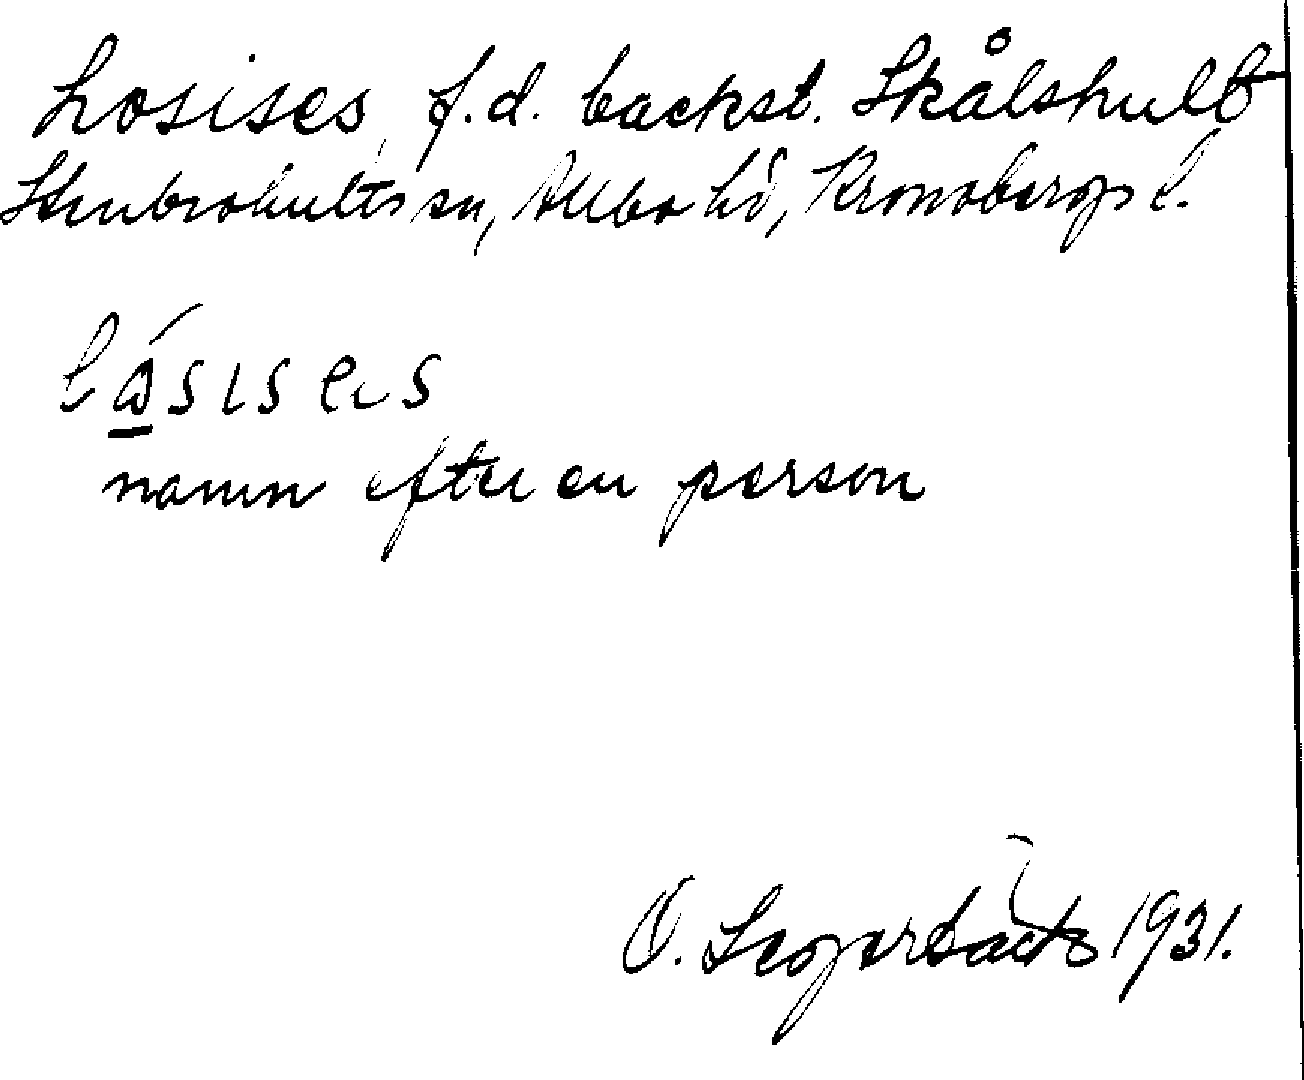 Losises, f.d. backst. Skålshult
Stenbrohults sn, Allbo hd, Kronobergs l.
namn efter en person
O. Segerbäck 1931.